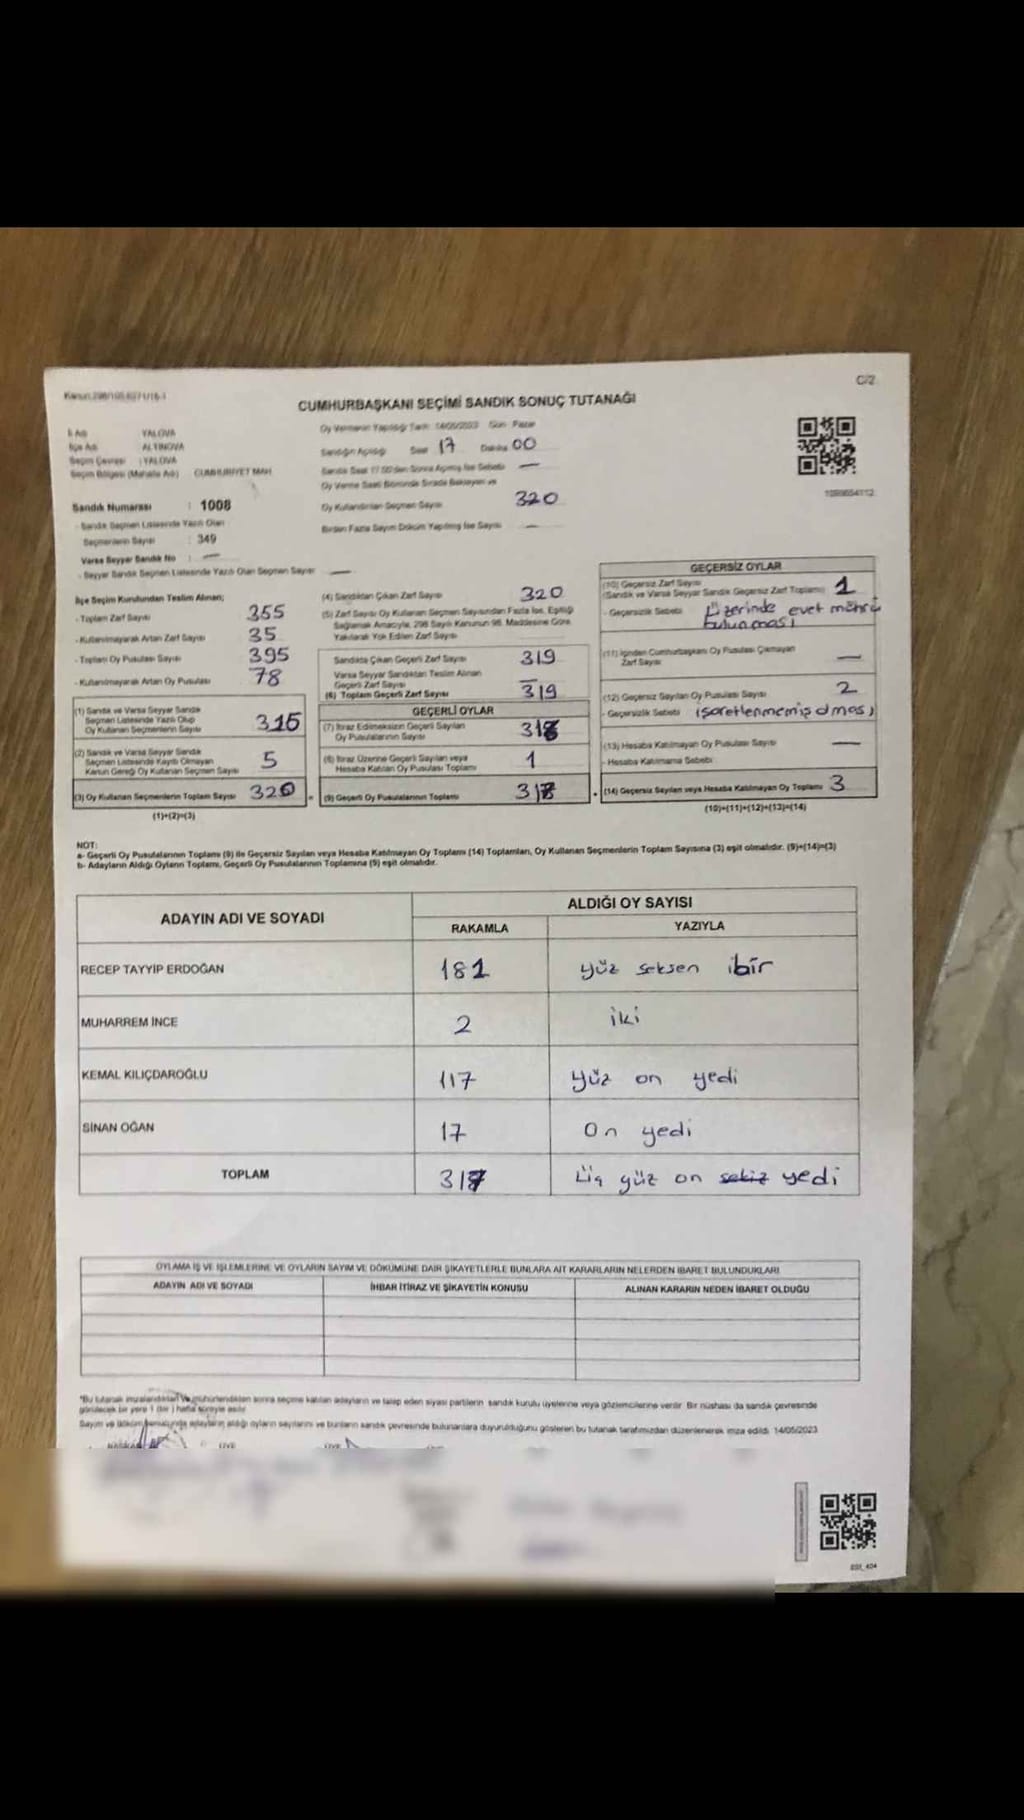 C/2
CUMHURBAŞKANI SEÇİMİ SANDIK SONUÇ TUTANAĞI
İl Adı YALOVA
İlçe Adı ALTINOVA
Seçim Çevresi : YALOVA
Seçim Bölgesi (Mahalle Adı) CUMHURİYET MAH
Sandık Numarası : 1008
- Sandık Seçmen Listesinde Yazılı Olan
Seçmenlerin Sayısı : 349
Varsa Seyyar Sandık No : —
- Seyyar Sandık Seçmen Listesinde Yazılı Olan Seçmen Sayısı —
Oy Vermenin Yapıldığı Tarih: 14/05/2023 Gün Pazar
Sandığın Açıldığı Saat 17 Dakika 00
Sandık Saat 17.00'den Sonra Açılmış İse Sebebi —
Oy Verme Saati Bitiminde Sırada Bekleyen ve
Oy Kullandırılan Seçmen Sayısı 320
Birden Fazla Sayım Döküm Yapılmış İse Sayısı —
İlçe Seçim Kurulundan Teslim Alınan;
- Toplam Zarf Sayısı 355
- Kullanılmayarak Artan Zarf Sayısı 35
- Toplam Oy Pusulası Sayısı 395
- Kullanılmayarak Artan Oy Pusulası 78
(1) Sandık ve Varsa Seyyar Sandık
Seçmen Listesinde Yazılı Olup
Oy Kullanan Seçmenlerin Sayısı 315
(2) Sandık ve Varsa Seyyar Sandık
Seçmen Listesinde Kayıtlı Olmayan
Kanun Gereği Oy Kullanan Seçmen Sayısı 5
(3) Oy Kullanan Seçmenlerin Toplam Sayısı 320
(1)+(2)=(3)
(4) Sandıktan Çıkan Zarf Sayısı 320
(5) Zarf Sayısı Oy Kullanan Seçmen Sayısından Fazla İse, Eşitliği
Sağlamak Amacıyla, 298 Sayılı Kanunun 98. Maddesine Göre
Yakılarak Yok Edilen Zarf Sayısı
Sandıkta Çıkan Geçerli Zarf Sayısı 319
Varsa Seyyar Sandıktan Teslim Alınan
Geçerli Zarf Sayısı —
(6) Toplam Geçerli Zarf Sayısı 319
GEÇERLİ OYLAR
(7) İtiraz Edilmeksizin Geçerli Sayılan
Oy Pusulalarının Sayısı
(8) İtiraz Üzerine Geçerli Sayılan veya
Hesaba Katılan Oy Pusulası Toplamı 1
(9) Geçerli Oy Pusulalarının Toplamı 317
GEÇERSİZ OYLAR
(10) Geçersiz Zarf Sayısı
(Sandık ve Varsa Seyyar Sandık Geçersiz Zarf Toplamı) 1
- Geçersizlik Sebebi Üzerinde evet mührü
bulunması
(11) İçinden Cumhurbaşkanı Oy Pusulası Çıkmayan
Zarf Sayısı —
(12) Geçersiz Sayılan Oy Pusulası Sayısı 2
- Geçersizlik Sebebi işaretlenmemiş olması
(13) Hesaba Katılmayan Oy Pusulası Sayısı —
- Hesaba Katılmama Sebebi
(14) Geçersiz Sayılan veya Hesaba Katılmayan Oy Toplamı 3
(10)+(11)+(12)+(13)=(14)
NOT:
a- Geçerli Oy Pusulalarının Toplamı (9) ile Geçersiz Sayılan veya Hesaba Katılmayan Oy Toplamı (14) Toplamları, Oy Kullanan Seçmenlerin Toplam Sayısına (3) eşit olmalıdır. (9)+(14)=(3)
b- Adayların Aldığı Oyların Toplamı, Geçerli Oy Pusulalarının Toplamına (9) eşit olmalıdır.
ADAYIN ADI VE SOYADI ALDIĞI OY SAYISI
RAKAMLA YAZIYLA
RECEP TAYYİP ERDOĞAN 181 yüz seksen bir
MUHARREM İNCE 2 iki
KEMAL KILIÇDAROĞLU 117 yüz on yedi
SİNAN OĞAN 17 On yedi
TOPLAM 317 Üç yüz on sekiz yedi
OYLAMA İŞ VE İŞLEMLERİNE VE OYLARIN SAYIM VE DÖKÜMÜNE DAİR ŞİKAYETLERLE BUNLARA AİT KARARLARIN NELERDEN İBARET BULUNDUKLARI
ADAYIN ADI VE SOYADI İHBAR İTİRAZ VE ŞİKAYETİN KONUSU ALINAN KARARIN NEDEN İBARET OLDUĞU
*Bu tutanak imzalandıktan ve mühürlendikten sonra seçime katılan adayların ve talep eden siyasi partilerin sandık kurulu üyelerine veya gözlemcilerine verilir. Bir nüshası da sandık çevresinde
görülecek bir yere 1 (bir) hafta süreyle asılır.
Sayım ve döküm sonucunda adayların aldığı oyların sayılarını ve bunların sandık çevresinde bulunanlara duyurulduğunu gösteren bu tutanak tarafımızdan düzenlenerek imza edildi. 14/05/2023